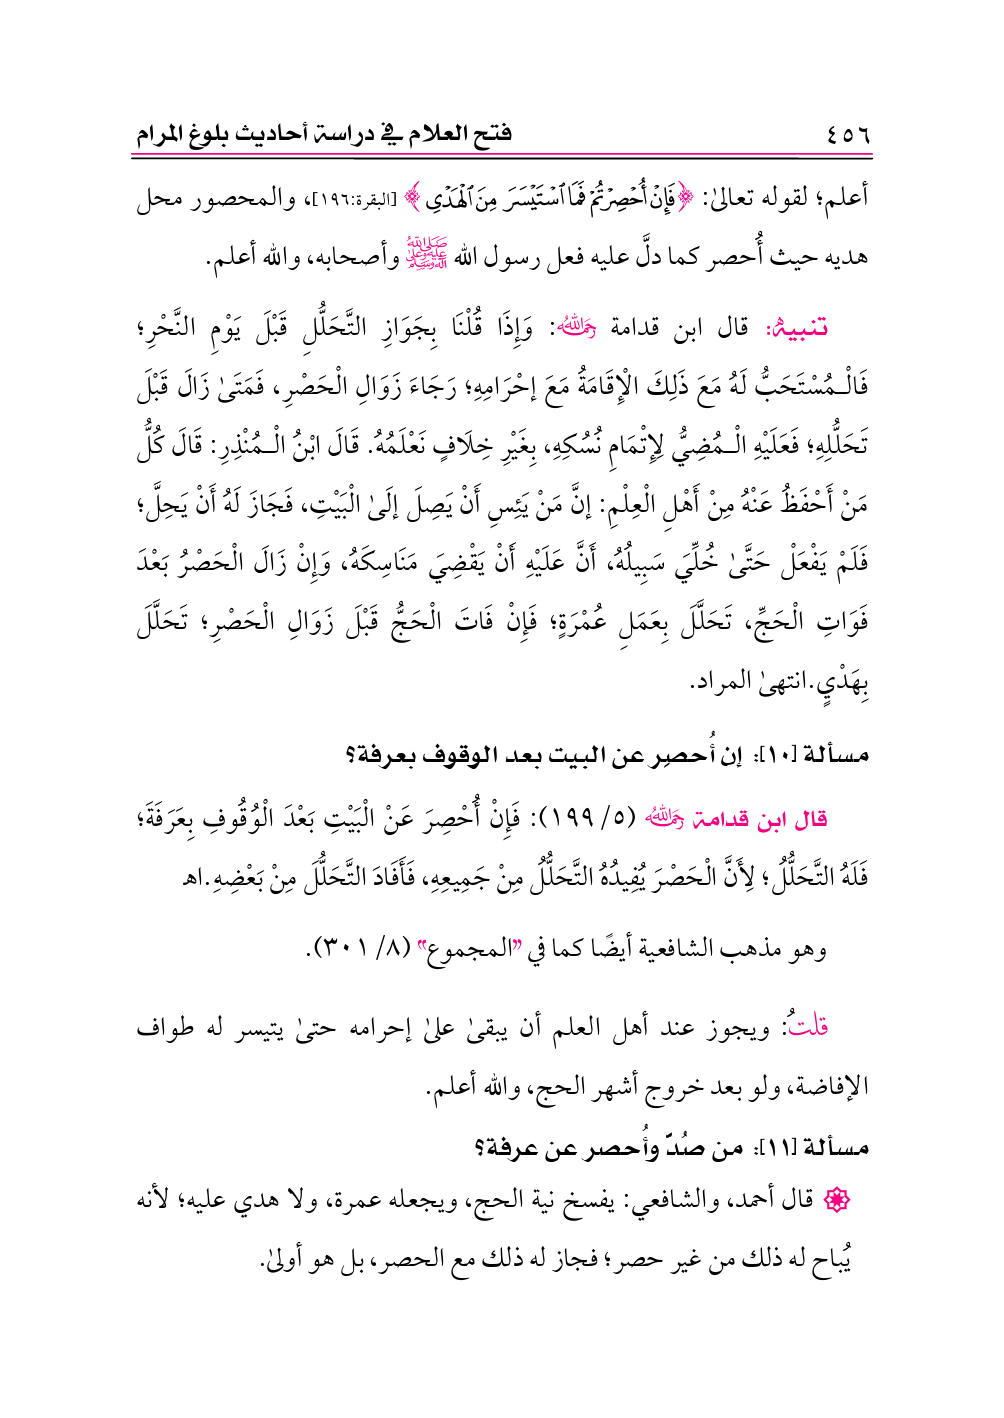 ٤٥٦ فتح العلام في دراسة أحاديث بلوغ المرام
أعلم؛ لقوله تعالىٰ: ﴿فَإِنۡ أُحۡصِرۡتُمۡ فَمَا ٱسۡتَيۡسَرَ مِنَ ٱلۡهَدۡيِ﴾ [البقرة:١٩٦]، والمحصور محل
هديه حيث أُحصر كما دلَّ عليه فعل رسول الله ﷺ وأصحابه، والله أعلم.
تنبيهٌ: قال ابن قدامة رحمه الله: وَإِذَا قُلْنَا بِجَوَازِ التَّحَلُّلِ قَبْلَ يَوْمِ النَّحْرِ؛
فَالْـمُسْتَحَبُّ لَهُ مَعَ ذَلِكَ الْإِقَامَةُ مَعَ إحْرَامِهِ؛ رَجَاءَ زَوَالِ الْحَصْرِ، فَمَتَىٰ زَالَ قَبْلَ
تَحَلُّلِهِ؛ فَعَلَيْهِ الْـمُضِيُّ لِإِتْمَامِ نُسُكِهِ، بِغَيْرِ خِلَافٍ نَعْلَمُهُ. قَالَ ابْنُ الْـمُنْذِرِ: قَالَ كُلُّ
مَنْ أَحْفَظُ عَنْهُ مِنْ أَهْلِ الْعِلْمِ: إنَّ مَنْ يَئِسِ أَنْ يَصِلَ إلَىٰ الْبَيْتِ، فَجَازَ لَهُ أَنْ يَحِلَّ؛
فَلَمْ يَفْعَلْ حَتَّىٰ خُلِّيَ سَبِيلُهُ، أَنَّ عَلَيْهِ أَنْ يَقْضِيَ مَنَاسِكَهُ، وَإِنْ زَالَ الْحَصْرُ بَعْدَ
فَوَاتِ الْحَجِّ، تَحَلَّلَ بِعَمَلِ عُمْرَةٍ؛ فَإِنْ فَاتَ الْحَجُّ قَبْلَ زَوَالِ الْحَصْرِ؛ تَحَلَّلَ
بِهَدْيٍ.انتهىٰ المراد.
مسألة [١٠]: إن أُحصِر عن البيت بعد الوقوف بعرفة؟
قال ابن قدامة رحمه الله (٥/ ١٩٩): فَإِنْ أُحْصِرَ عَنْ الْبَيْتِ بَعْدَ الْوُقُوفِ بِعَرَفَةَ؛
فَلَهُ التَّحَلُّلُ؛ لِأَنَّ الْحَصْرَ يُفِيدُهُ التَّحَلُّلُ مِنْ جَمِيعِهِ، فَأَفَادَ التَّحَلُّلَ مِنْ بَعْضِهِ.اهـ
وهو مذهب الشافعية أيضًا كما في "المجموع" (٨/ ٣٠١).
قلتُ: ويجوز عند أهل العلم أن يبقىٰ علىٰ إحرامه حتىٰ يتيسر له طواف
الإفاضة، ولو بعد خروج أشهر الحج، والله أعلم.
مسألة [١١]: من صُدّ وأُحصر عن عرفة؟
۞ قال أحمد، والشافعي: يفسخ نية الحج، ويجعله عمرة، ولا هدي عليه؛ لأنه
يُباح له ذلك من غير حصر؛ فجاز له ذلك مع الحصر، بل هو أولىٰ.